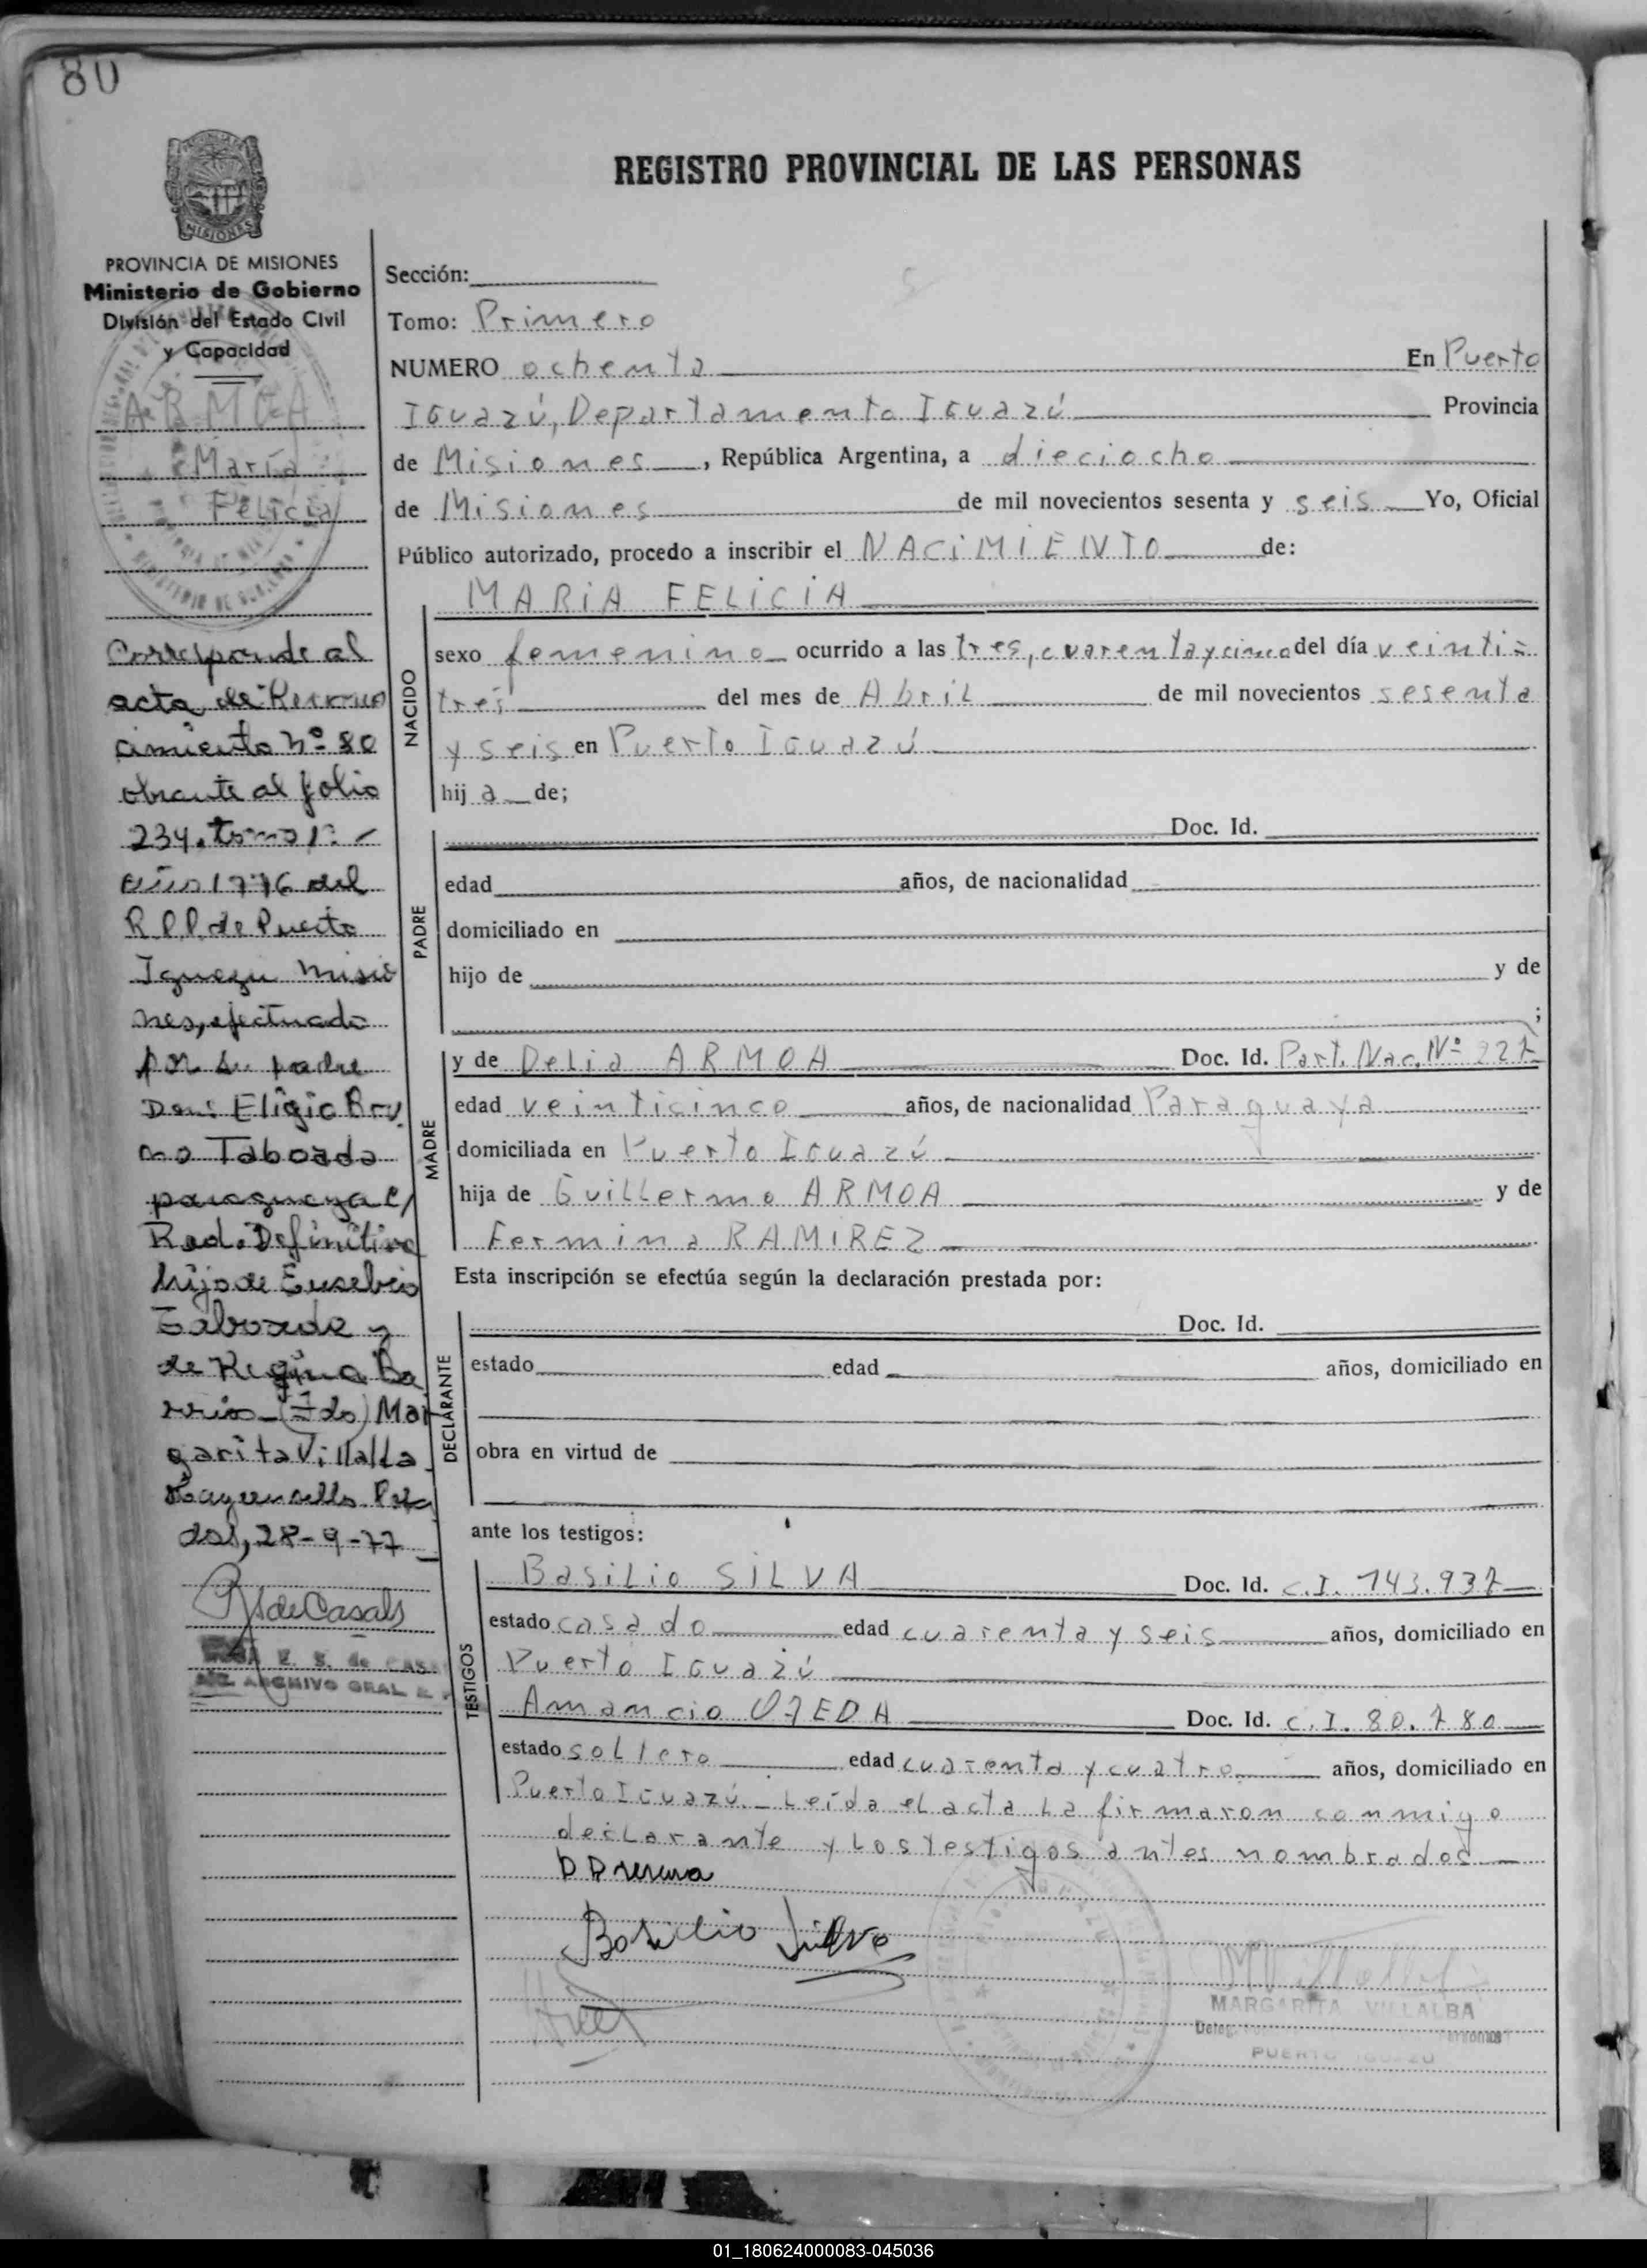 80
REGISTRO PROVINCIAL DE LAS PERSONAS
MISIONES
PROVINCIA DE MISIONES
Ministerio de Gobierno
División del Estado Civil
y Capacidad
ARMOA
María
Felicia
Corresponde al
acta de Recono
cimiento Nº 80
obrante al folio
234. tomo 1º
año 1976 del
R.P.P. de Puerto
Iguazu Misio
nes, efectuado
por su padre
Don: Eligio Bru
no Taboada
paraguaya C/
Rad. Definitiva
hijo de Eusebio
Taboada y
de Regina Ba
rrios (Fdo) Mar
garita Villalba
Hay un sello. Posa
das, 28-9-77
R S de Casals
R. S. de CAS
ARCHIVO GRAL
Sección:
Tomo: Primero
NUMERO ochenta En Puerto
Iguazú, Departamento Iguazú Provincia
de Misiones, República Argentina, a dieciocho
de Misiones de mil novecientos sesenta y seis Yo, Oficial
Público autorizado, procedo a inscribir el NACIMIENTO de:
NACIDO
MARIA FELICIA
sexo femenino ocurrido a las tres, cuarenta y cinco del día veinti=
trés del mes de Abril de mil novecientos sesenta
y seis en Puerto Iguazú
hij a de;
PADRE
Doc. Id.
edad años, de nacionalidad
domiciliado en
hijo de y de
;
MADRE
y de Delia ARMOA Doc. Id. Part. Nac. Nº 227
edad veinticinco años, de nacionalidad Paraguaya
domiciliada en Puerto Iguazú
hija de Guillermo ARMOA y de
Fermina RAMIREZ
Esta inscripción se efectúa según la declaración prestada por:
DECLARANTE
Doc. Id.
estado edad años, domiciliado en
obra en virtud de
ante los testigos:
TESTIGOS
Basilio SILVA Doc. Id. C.I. 143.937
estado casado edad cuarenta y seis años, domiciliado en
Puerto Iguazú
Amancio OJEDA Doc. Id. C.I. 80.780
estado soltero edad cuarenta y cuatro años, domiciliado en
Puerto Iguazú. Leída el acta la firmaron conmigo
declarante y los testigos antes nombrados
Basilio Silva
MARGARITA VILLALBA
PUERTO IGUAZU
01_180624000083-045036